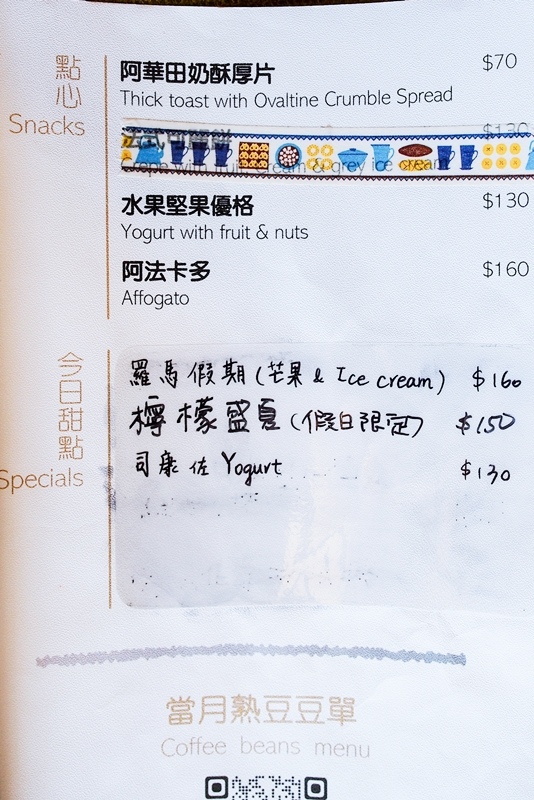 點心
Snacks
阿華田奶酥厚片 $70
Thick toast with Ovaltine Crumble Spread
法式可麗餅 $130
with fruit cream & grey ice cream
水果堅果優格 $130
Yogurt with fruit & nuts
阿法卡多 $160
Affogato
今日甜點
Specials
羅馬假期(芒果 & Ice cream) $160
檸檬盛夏(假日限定) $150
司康佐 Yogurt $130
當月熟豆豆單
Coffee beans menu